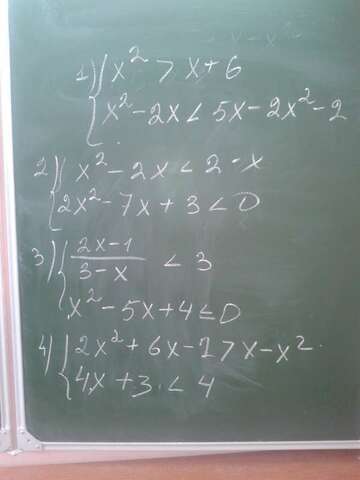 1) { x² > x + 6
x² - 2x < 5x - 2x² - 2
2) { x² - 2x < 2 - x
2x² - 7x + 3 < 0
3) { (2x-1)/(3-x) < 3
x² - 5x + 4 ≤ 0
4) { 2x² + 6x - 1 > x - x²
4x + 3 < 4